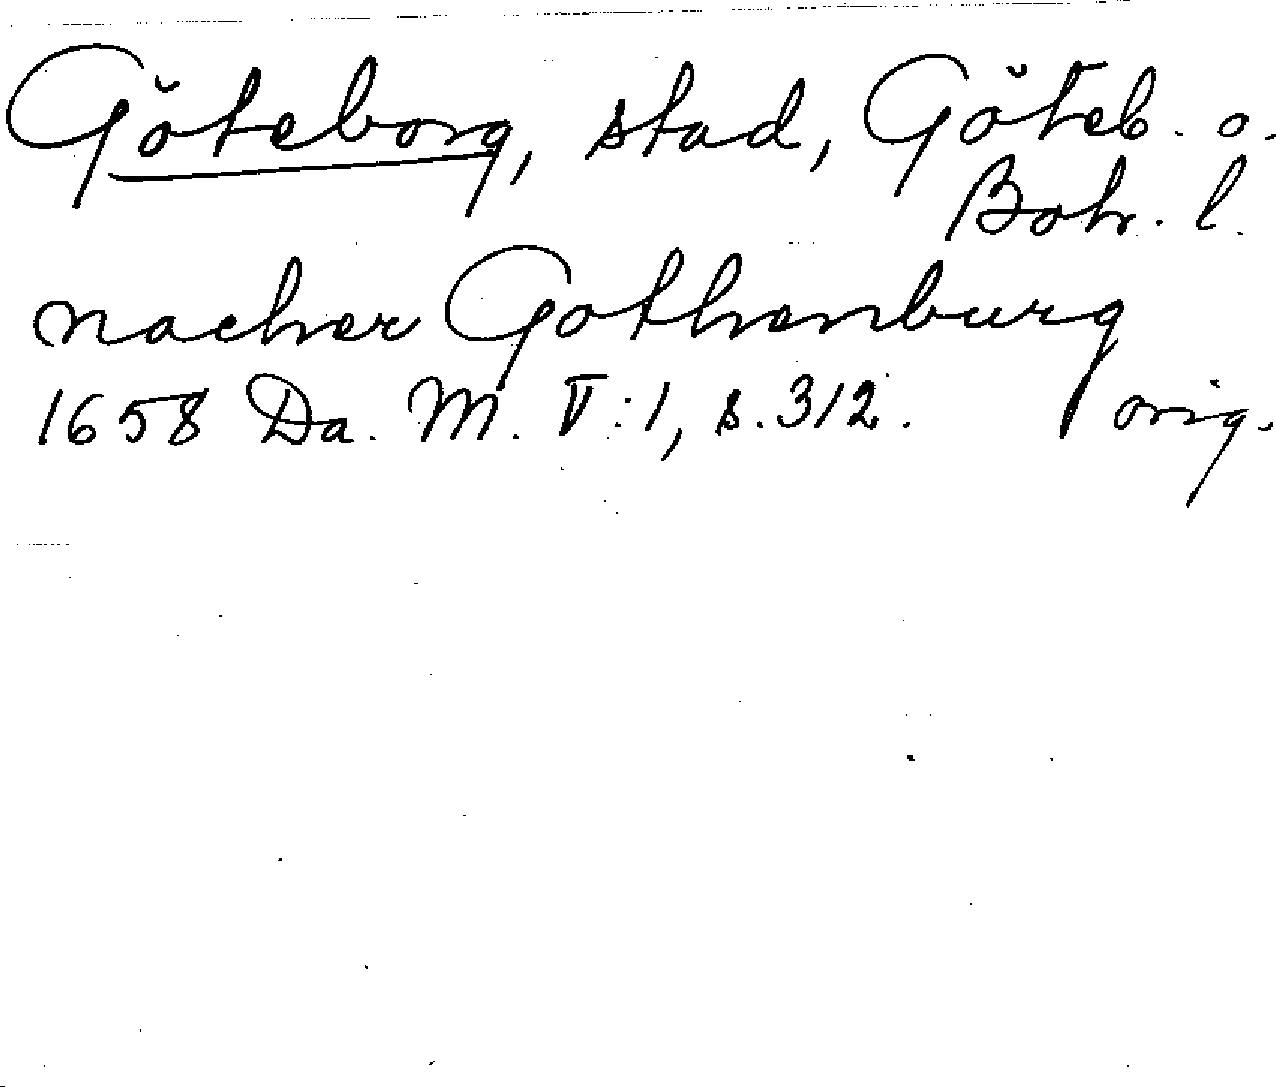 Göteborg, stad, Göteb. o.
Boh. l.
nacher Gothenburg
1658 Da. M. V:1, s. 312. orig.